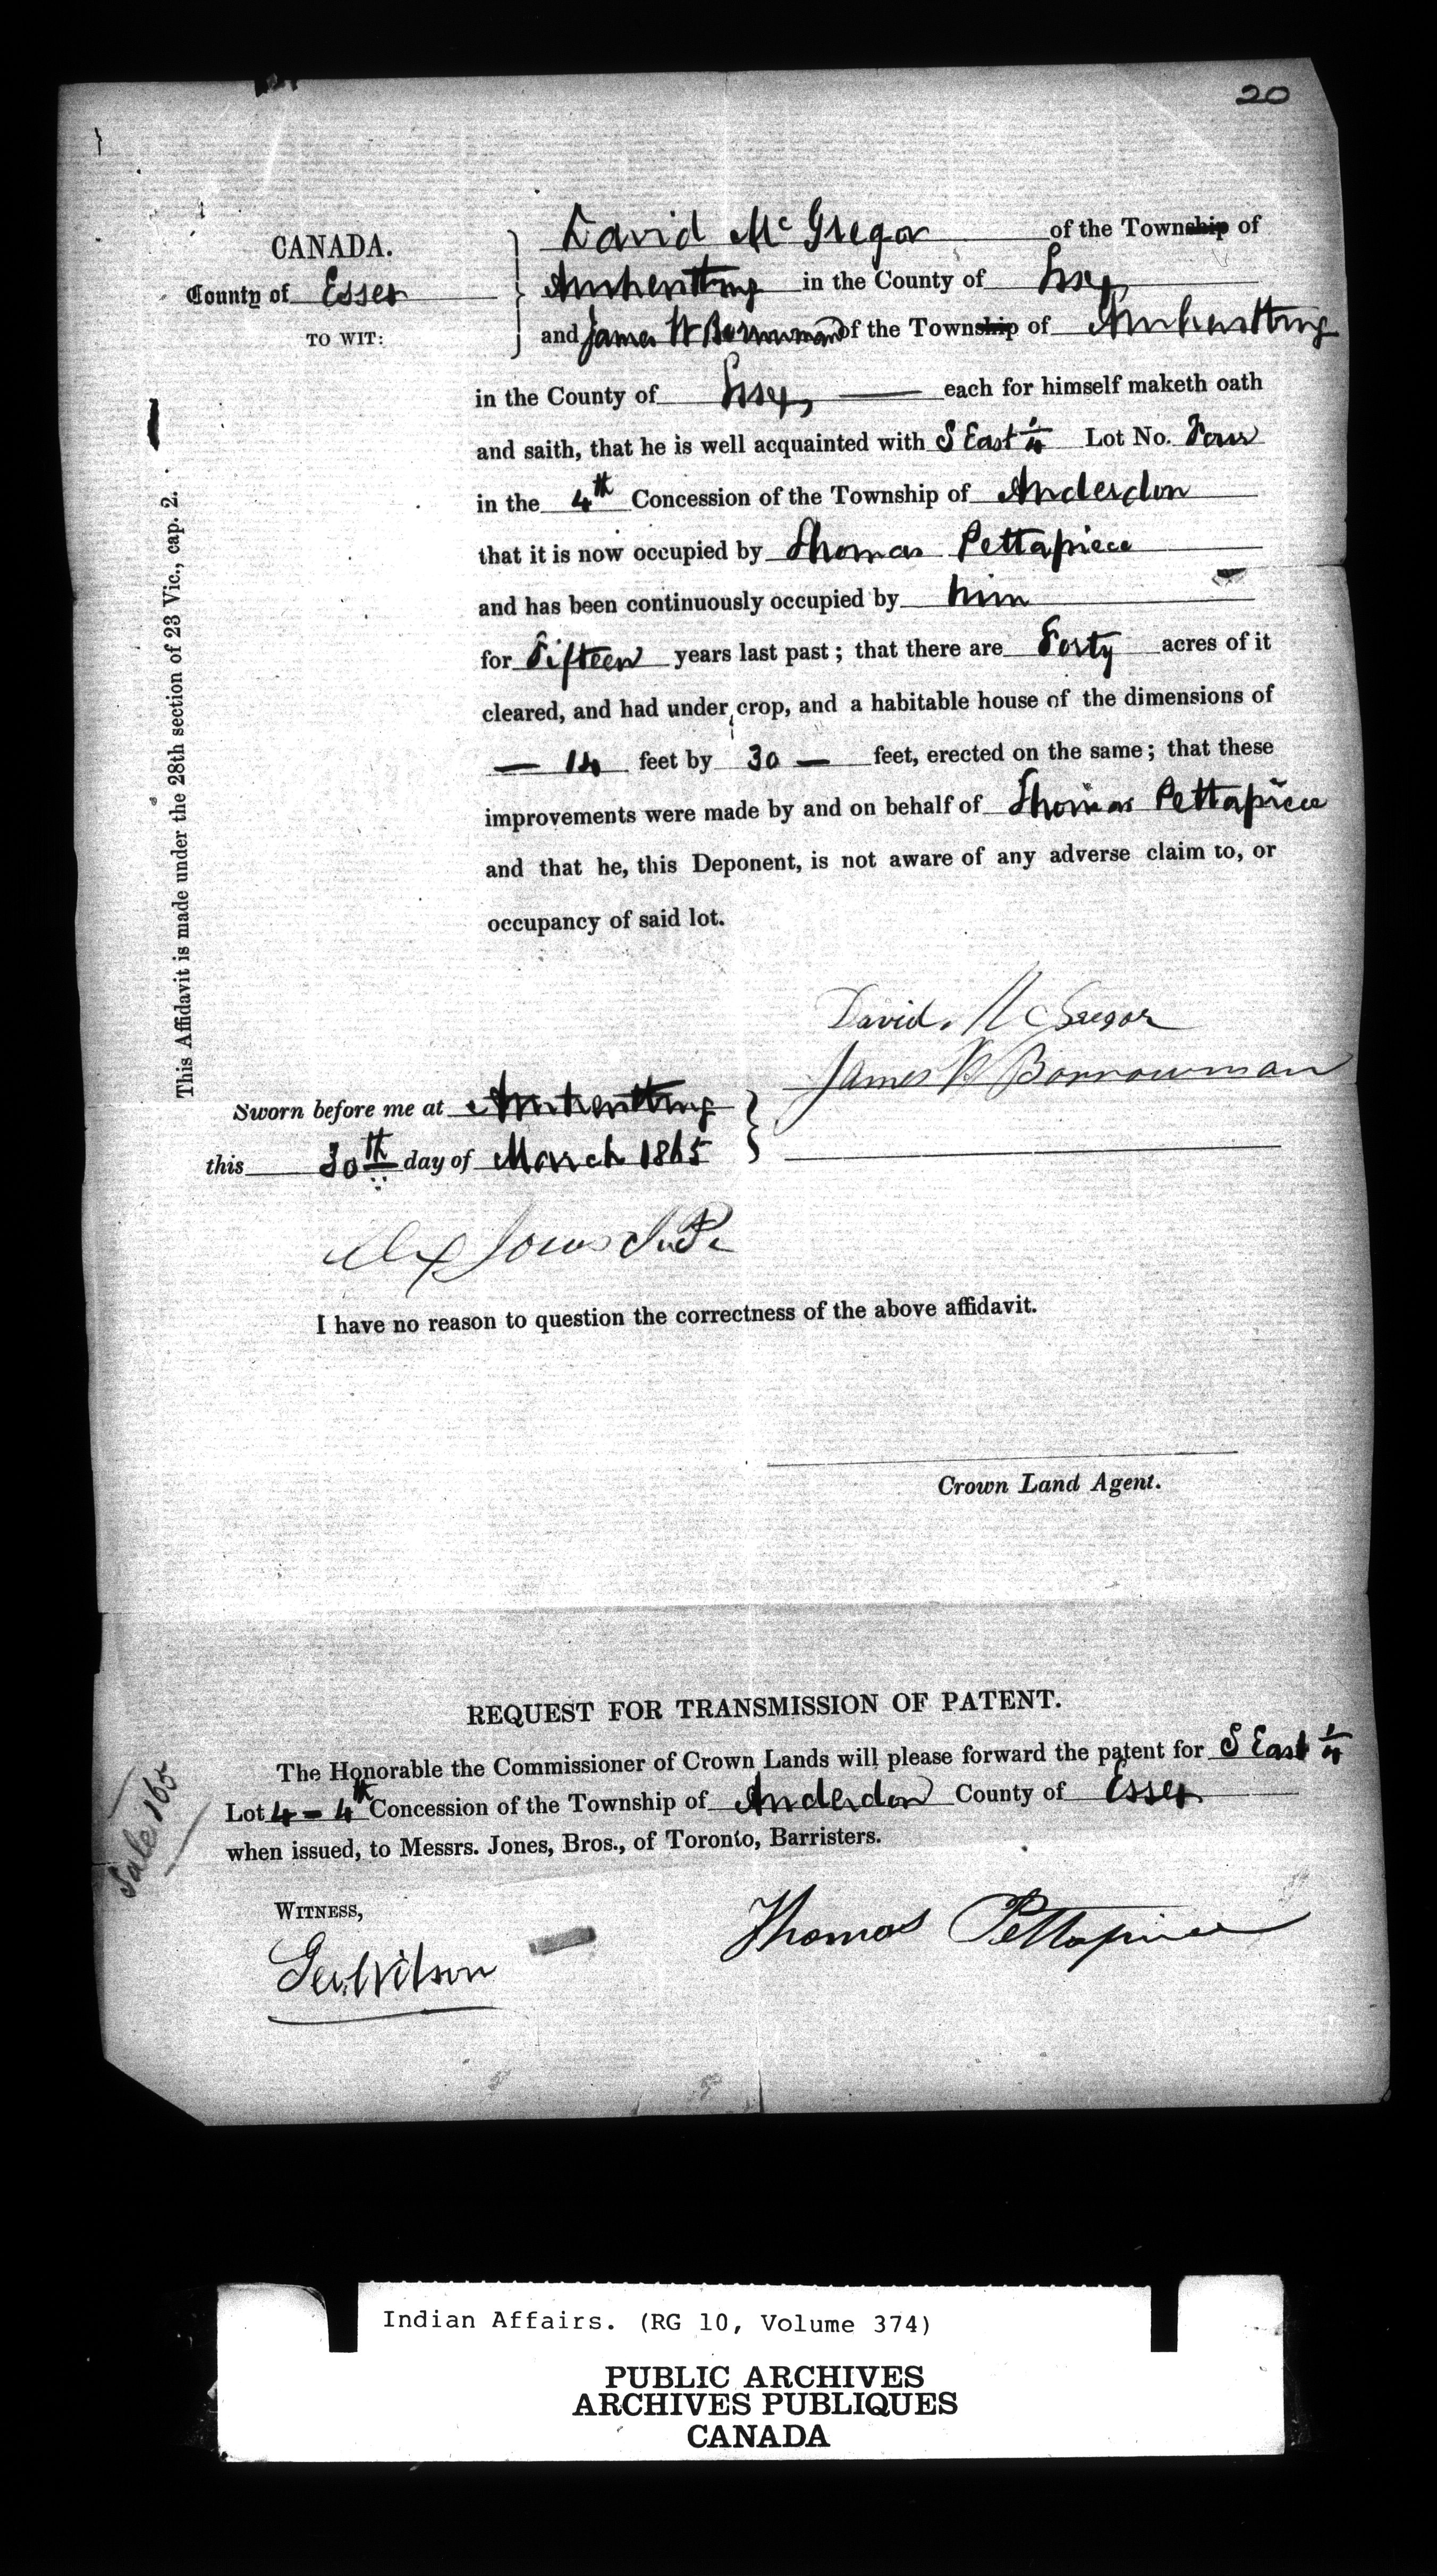 20
CANADA.
County of Essex
TO WIT:
David McGregor of the Township of
Amherstburg in the County of Essex
and James W Borrowman of the Township of Amherstburg
in the County of Essex each for himself maketh oath
and saith, that he is well acquainted with S East 1/4 Lot No. Four
in the 4th Concession of the Township of Anderdon
that it is now occupied by Thomas Pettapiece
and has been continuously occupied by him
for Fifteen years last past; that there are Forty acres of it
cleared, and had under crop, and a habitable house of the dimensions of
— 14 feet by 30 — feet, erected on the same; that these
improvements were made by and on behalf of Thomas Pettapiece
and that he, this Deponent, is not aware of any adverse claim to, or
occupancy of said lot.
This Affidavit is made under the 28th section of 23 Vic., cap. 2.
David McGregor
James W Borrowman
Sworn before me at Amherstburg
this 30th day of March 1865
J.P.
I have no reason to question the correctness of the above affidavit.
Crown Land Agent.
REQUEST FOR TRANSMISSION OF PATENT.
The Honorable the Commissioner of Crown Lands will please forward the patent for S East 1/4
Lot 4 - 4th Concession of the Township of Anderdon County of Essex
when issued, to Messrs. Jones, Bros., of Toronto, Barristers.
Sale 165
WITNESS,
Geo. Wilson
Thomas Pettapiece
Indian Affairs. (RG 10, Volume 374)
PUBLIC ARCHIVES
ARCHIVES PUBLIQUES
CANADA